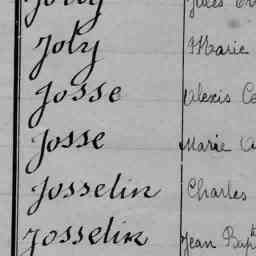 Joly Marie
Josse Alexis
Josse Marie
Josselin Charles
Josselin Jean Bapt